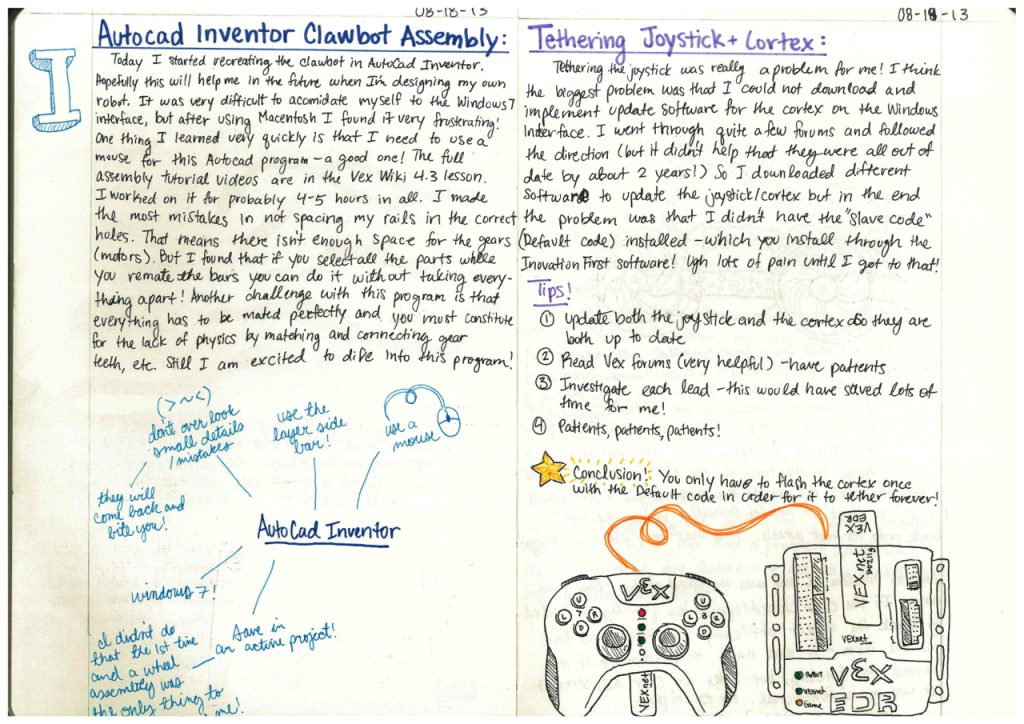 08-18-13
Autocad Inventor Clawbot Assembly:
I
Today I started recreating the clawbot in AutoCad Inventor.
Hopefully this will help me in the future when I'm designing my own
robot. It was very difficult to accomidate myself to the Windows 7
interface, but after using Macintosh I found it very frosterating!
One thing I learned very quickly is that I need to use a
mouse for this Autocad program - a good one! The full
assembly tutorial videos are in the Vex Wiki 4.3 lesson.
I worked on it for probably 4-5 hours in all. I made
the most mistakes in not spacing my rails in the correct
holes. That means there isn't enough space for the gears
(motors). But I found that if you select all the parts while
you remate the bars you can do it without taking every-
thing apart! Another challenge with this program is that
everything has to be mated perfectly and you must constitute
for the lack of physics by matching and connecting gear
teeth, etc. Still I am excited to dive into this program!
(>~<)
don't over look
small details
/mistakes
use the
layer side
bar!
use a
mouse
they will
come back and
bite you!
AutoCad Inventor
windows 7!
Save in
an active project!
I didn't do
that the 1st time
and a wheel
assembly was
the only thing to
me!
08-18-13
Tethering Joystick + Cortex:
Tethering the joystick was really a problem for me! I think
the biggest problem was that I could not download and
implement update software for the cortex on the Windows
Interface. I went through quite a few forums and followed
the direction (but it didn't help that they were all out of
date by about 2 years!) So I downloaded different
software to update the joystick/cortex but in the end
the problem was that I didn't have the "slave code"
(Default code) installed - which you install through the
Inovation First software! Ugh lots of pain until I got to that!
Tips!
① Update both the joystick and the cortex so they are
both up to date
② Read Vex forums (very helpful) - have patients
③ Investigate each lead - this would have saved lots of
time for me!
④ Patients, patients, patients!
Conclusion! You only have to flash the cortex once
with the Default code in order for it to tether forever!
VEX
EDR
VEXnet
VEXnet
VEX
U
L
R
D
U
L
R
D
VEXnet
Robot
VEXnet
Game
VEX
EDR